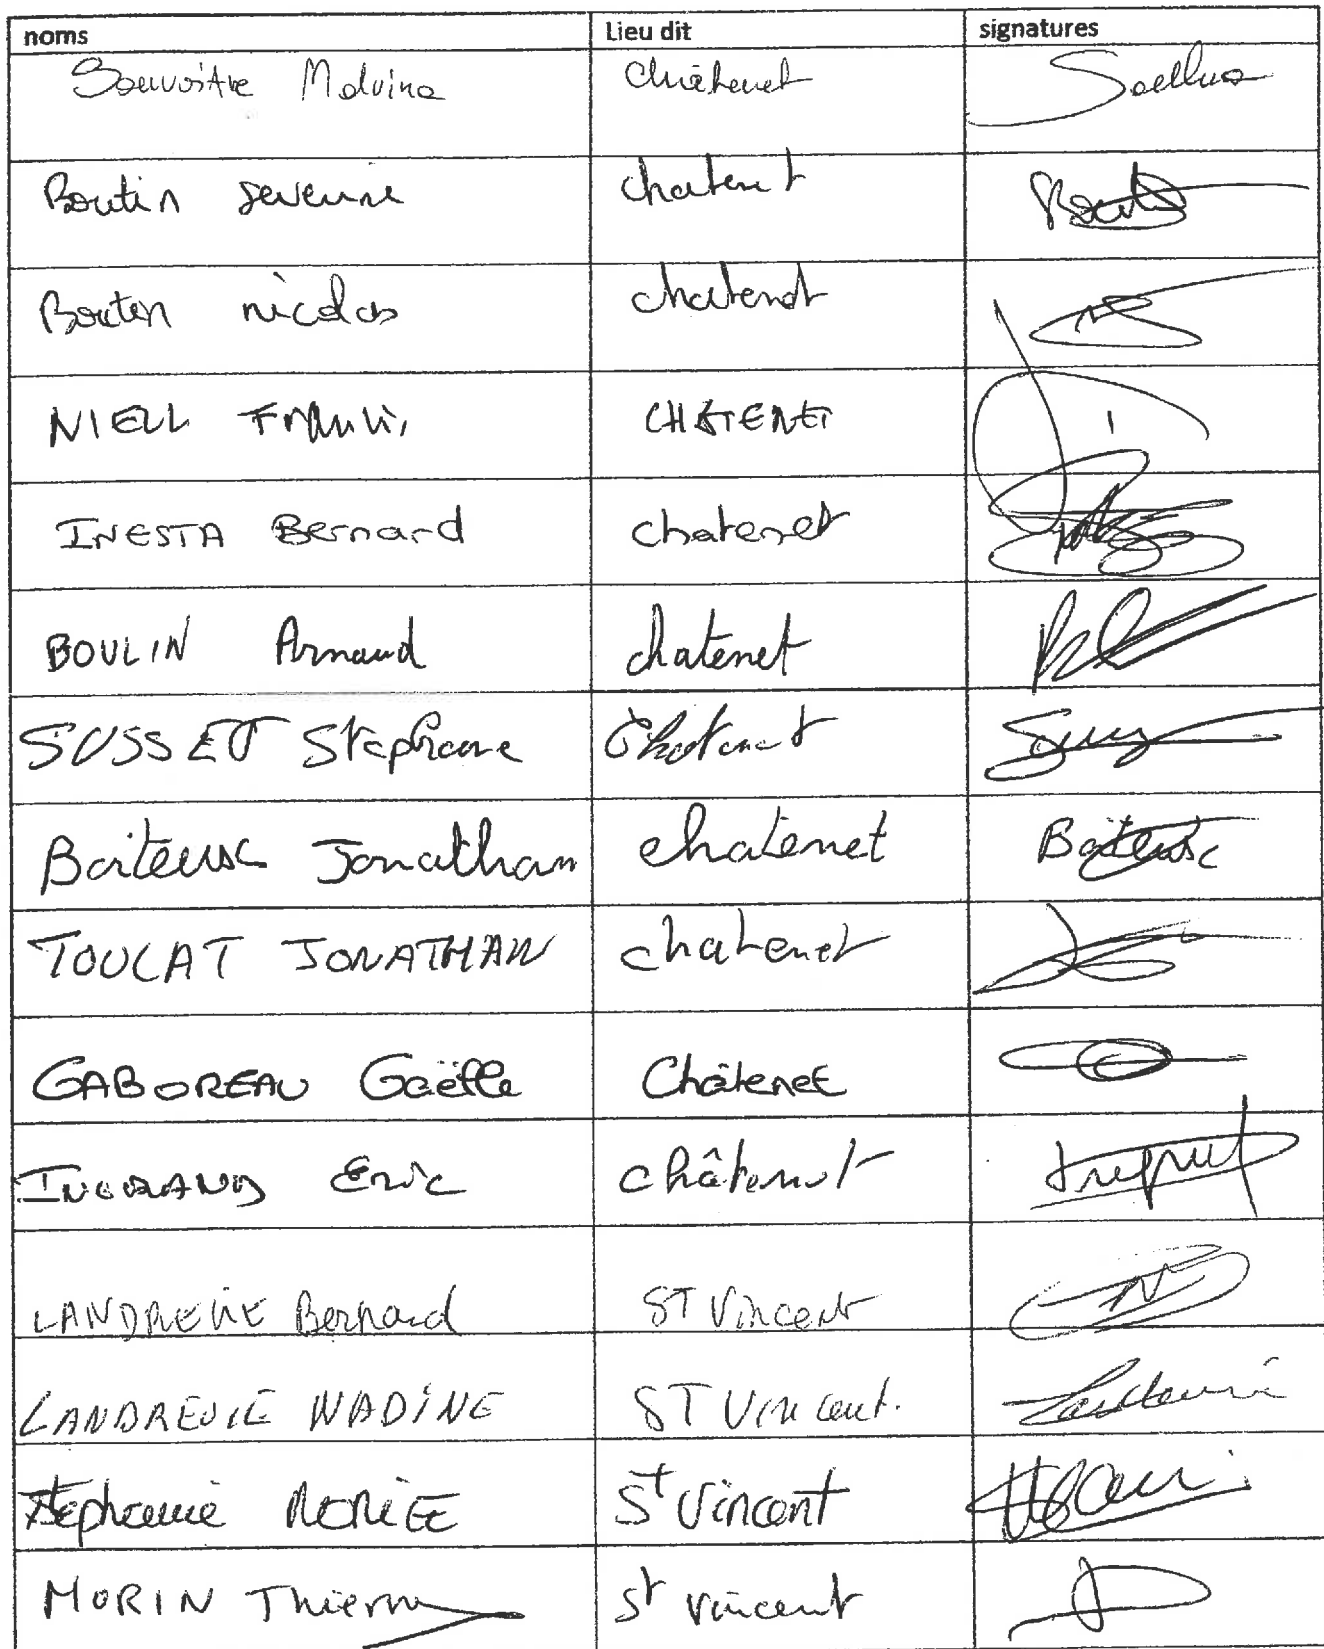 noms Lieu dit signatures
Malvina Châtenet
Boutin Severine chatenet
Boutin nicolas chatenet
NIELL CHATENET
INESTA Bernard chatenet
BOULIN Arnaud chatenet
SUSSET Stephane Chatenet
Boiteusc Jonathan chatenet Boiteusc
TOUCAT JONATHAN chatenet
GABOREAU Gaëlle Châtenet
INGRAND Eric châtenet
LANDREVIE Bernard ST Vincent
LANDREVIE NADINE ST Vincent.
Stephanie St Vincent
MORIN Thierry St Vincent